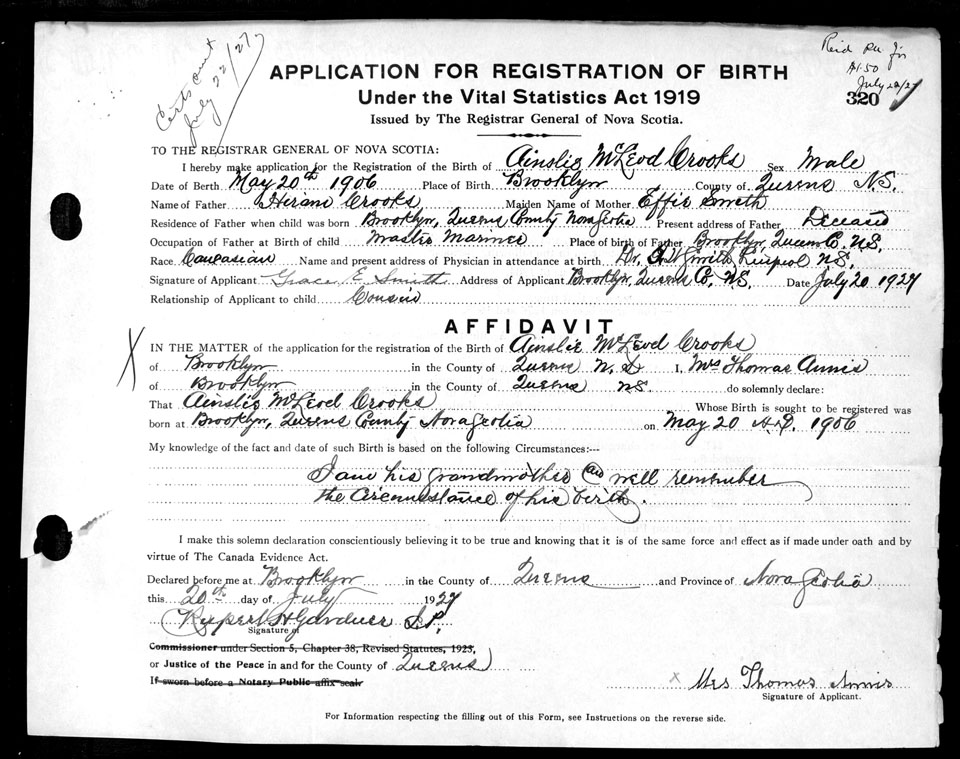 Certs sent
July 22/27
July 22/27
$1.50
320
APPLICATION FOR REGISTRATION OF BIRTH
Under the Vital Statistics Act 1919
Issued by The Registrar General of Nova Scotia.
TO THE REGISTRAR GENERAL OF NOVA SCOTIA:
I hereby make application for the Registration of the Birth of Ainslie McLeod Crooks Sex Male
Date of Birth May 20th 1906 Place of Birth Brooklyn County of Queens N.S.
Name of Father Hiram Crooks Maiden Name of Mother Effie Smith
Residence of Father when child was born Brooklyn, Queens County Nova Scotia Present address of Father Deceased
Occupation of Father at Birth of child Master Mariner Place of birth of Father Brooklyn, Queens Co. N.S.
Race Caucasian Name and present address of Physician in attendance at birth Dr. Smith, Liverpool N.S.
Signature of Applicant Grace E Smith Address of Applicant Brooklyn, Queens Co, N.S. Date July 20 1927
Relationship of Applicant to child Cousin
AFFIDAVIT
X IN THE MATTER of the application for the registration of the Birth of Ainslie McLeod Crooks
of Brooklyn in the County of Queens N.S I, Mrs Thomas Annis
of Brooklyn in the County of Queens N.S. do solemnly declare:
That Ainslie McLeod Crooks Whose Birth is sought to be registered was
born at Brooklyn, Queens County Nova Scotia on May 20 A.D. 1906
My knowledge of the fact and date of such Birth is based on the following Circumstances:—
I am his grandmother and well remember
the circumstance of his birth.
I make this solemn declaration conscientiously believing it to be true and knowing that it is of the same force and effect as if made under oath and by
virtue of The Canada Evidence Act.
Declared before me at Brooklyn in the County of Queens and Province of Nova Scotia
this 20th day of July 1927
Rupert H Gardner J.P.
Signature of
Commissioner under Section 5, Chapter 38, Revised Statutes, 1923,
or Justice of the Peace in and for the County of Queens
If sworn before a Notary Public affix seal
x Mrs Thomas Annis
Signature of Applicant.
For Information respecting the filling out of this Form, see Instructions on the reverse side.